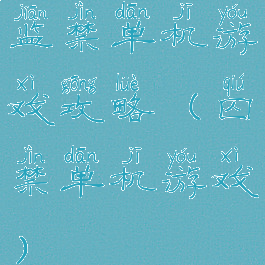 jiān jìn dān jī yóu
监禁单机游
xì gōng lüè qiú
戏攻略（囚
jìn dān jī yóu xì
禁单机游戏
）